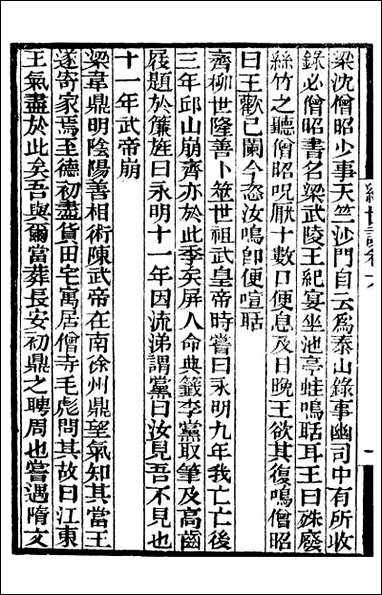 梁沈僧昭少事天竺沙門自云爲泰山錄事幽司中有所收
錄必僧昭書名梁武陵王紀宴坐池亭蛙鳴聒耳王曰殊廢
絲竹之聽僧昭呪厭十數口便息及日晚王欲其復鳴僧昭
曰王歡已闌今恣汝鳴卽便喧聒
齊柳世隆善卜筮世祖武皇帝時嘗曰永明九年我亡亡後
三年邱山崩齊亦於此季矣屏人命典籤李黨取筆及高齒
屐題於簾旌曰永明十一年因流涕謂黨曰汝見吾不見也
十一年武帝崩
梁韋鼎明陰陽善相術陳武帝在南徐州鼎望氣知其當王
遂寄家焉至德初盡貨田宅寓居僧寺毛彪問其故曰江東
王氣盡於此矣吾與爾當葬長安初鼎之聘周也嘗遇隋文